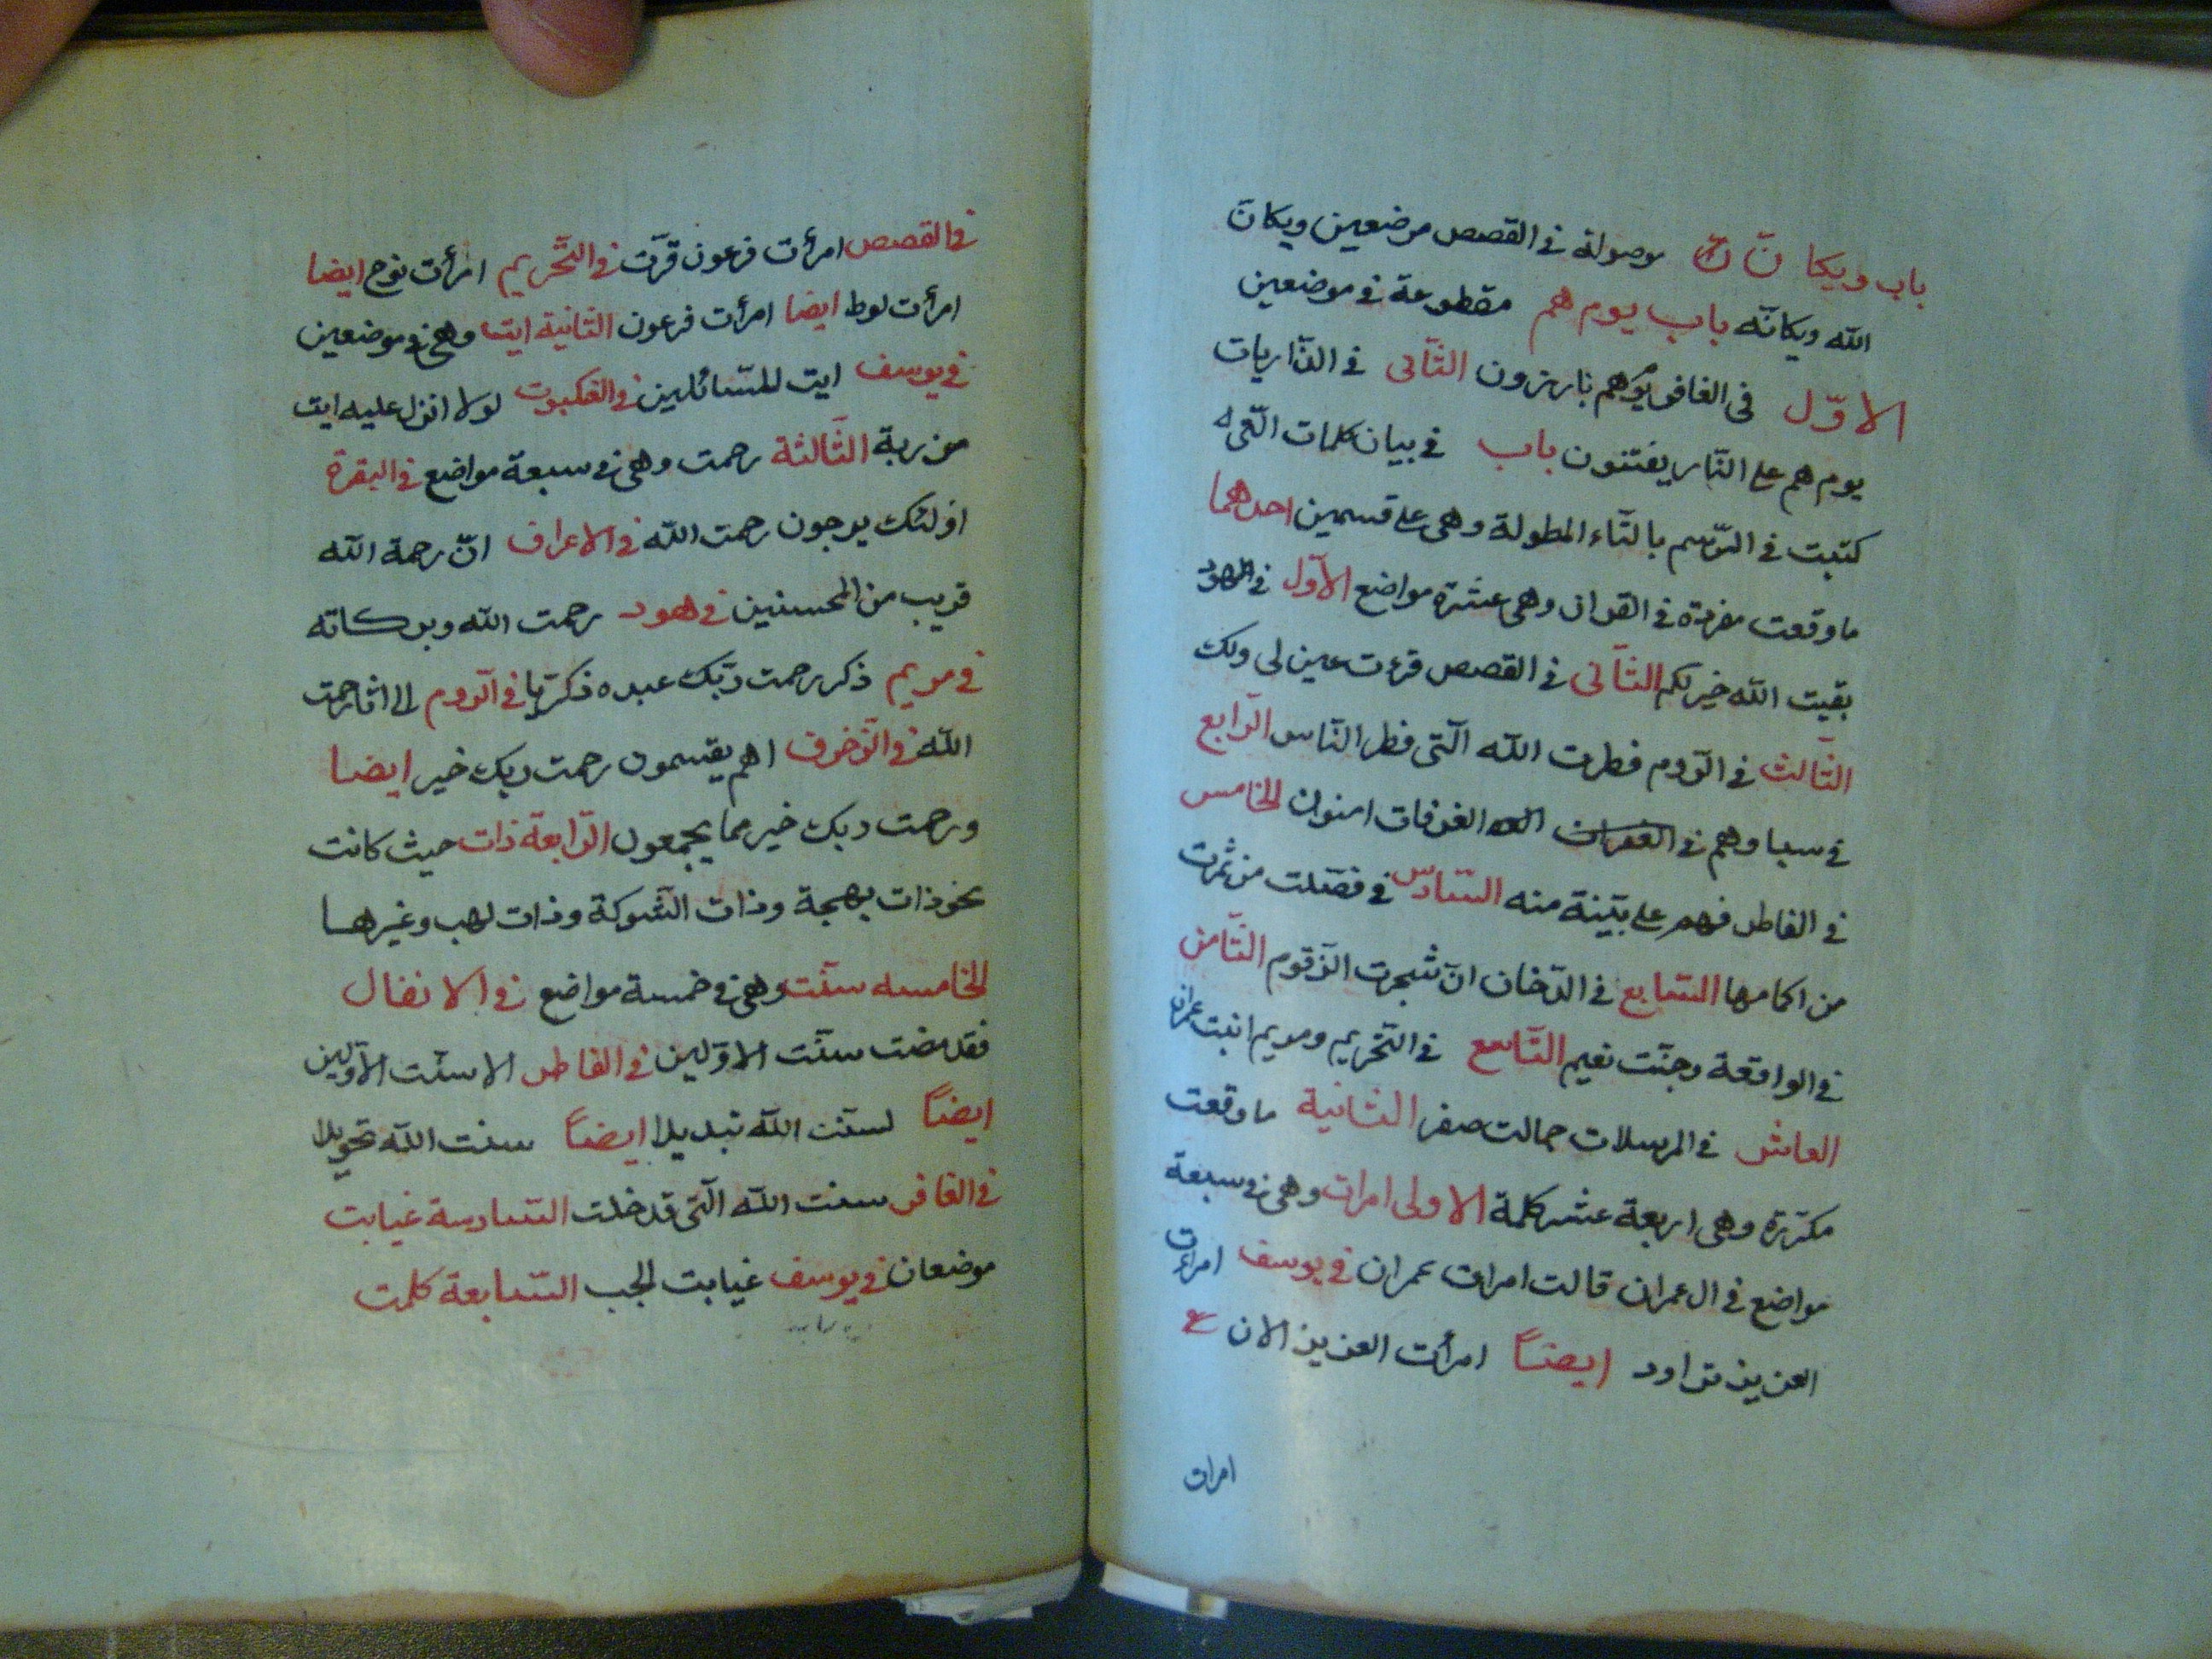 باب ويكا نّ موصولة في القصص موضعين ويكانّ
الله ويكانّه باب يوم هم مقطوعة في موضعين
الاوّل في الغافر يوم هم بارزون الثّانى في الذّاريات
يوم هم على النّار يفتنون باب في بيان كلمات الّتى
كتبت في الرّسم بالتّاء المطولة وهى على قسمين احدهما
ما وقعت مفردة في القران وهى عشرة مواضع الاوّل في الهود
بقيت الله خير لكم الثّانى في القصص قرّت عين لى ولك
الثّالث في الرّوم فطرت الله الّتى فطر النّاس الرّابع
في سبا وهم في الغرفات امنون الخامس
في الفاطر فهم على بيّنة منه السّادس في فصّلت من ثمرت
من اكمامها السّابع في الدّخان انّ شجرت الزّقوم الثّامن
في الواقعة وجنّت نعيم التّاسع في التّحريم ومريم ابنت عمران
العاشر في المرسلات جمالت صفر الثّانية ما وقعت
مكرّرة وهى اربعة عشر كلمة الاولى امرات وهى في سبعة
مواضع في ال عمران قالت امرات عمران في يوسف امرات
العزيز تراود ايضاً امرأت العزيز الان
امرات
في القصص امرأت فرعون قرّت في التّحريم امرأت نوح ايضا
امرأت لوط ايضا امرأت فرعون الثّانية ايت وهى في موضعين
في يوسف ايت للسّائلين في العنكبوت لولا انزل عليه ايت
من ربه الثّالثة رحمت وهى في سبعة مواضع في البقرة
اولئك يرجون رحمت الله في الاعراف انّ رحمة الله
قريب من المحسنين في هود رحمت الله وبركاته
في مريم ذكر رحمت ربّك عبده ذكريا في الرّوم الى اثار رحمت
الله في الزّخرف اهم يقسمون رحمت ربك خير ايضا
ورحمت ربك خير مما يجمعون الرّابعة ذات حيث كانت
نحو ذات بهجة وذات الشّوكة وذات لهب وغيرها
الخامسه سنّت وهى في خمسة مواضع في الانفال
فقد مضت سنّت الاوّلين في الفاطر الا سنّت الاوّلين
ايضاً لسنّت الله تبديلا ايضاً سنت الله تحويلا
في الغافر سنت الله الّتى قد خلت السّادسة غيابت
موضعان في يوسف غيابت الجب السّابعة كلمت